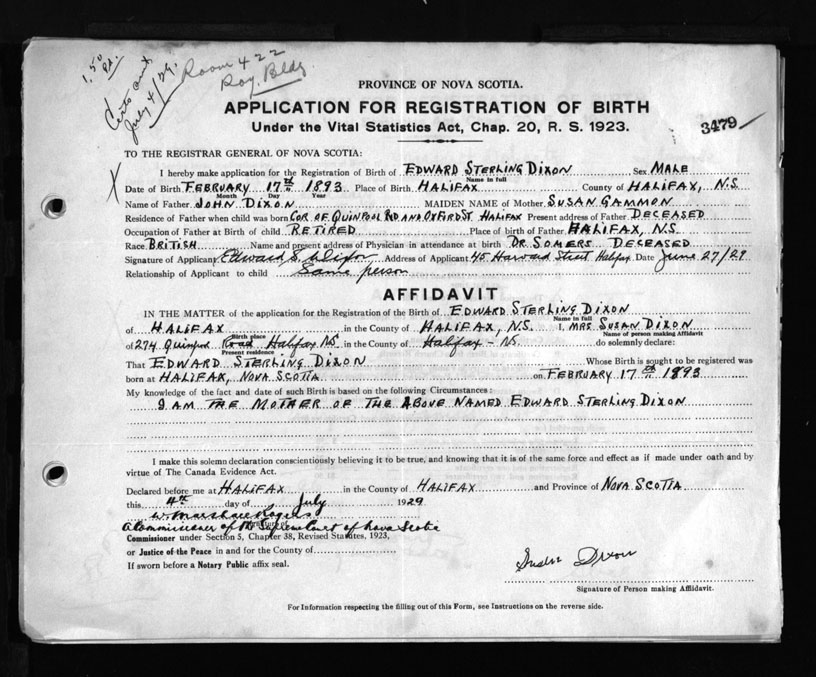 1.50 pd.
Certs and
July 4/29.
Room 422
Roy. Bldg
PROVINCE OF NOVA SCOTIA.
APPLICATION FOR REGISTRATION OF BIRTH
Under the Vital Statistics Act, Chap. 20, R. S. 1923.
3479
TO THE REGISTRAR GENERAL OF NOVA SCOTIA:
X
I hereby make application for the Registration of Birth of EDWARD STERLING DIXON Sex MALE
Name in full
Date of Birth FEBRUARY 17th 1893 Place of Birth HALIFAX County of HALIFAX, N.S.
Month Day Year
Name of Father JOHN DIXON MAIDEN NAME of Mother SUSAN GAMMON
Residence of Father when child was born COR OF QUINPOOL RD AND OXFORD ST. HALIFAX Present address of Father DECEASED
Occupation of Father at Birth of child RETIRED Place of birth of Father HALIFAX, N.S.
Race BRITISH Name and present address of Physician in attendance at birth DR. SOMERS DECEASED
Signature of Applicant Edward S. Dixon Address of Applicant 45 Harvard Street Halifax Date June 27/29
Relationship of Applicant to child Same person
AFFIDAVIT
IN THE MATTER of the application for the Registration of the Birth of EDWARD STERLING DIXON
Name in full
of HALIFAX in the County of HALIFAX, N.S. I MRS SUSAN DIXON
Birth place Name of person making Affidavit
of 274 Quinpool Road Halifax NS. in the County of Halifax - NS. do solemnly declare:
Present residence
That EDWARD STERLING DIXON Whose Birth is sought to be registered was
born at HALIFAX, NOVA SCOTIA on FEBRUARY 17th 1893
My knowledge of the fact and date of such Birth is based on the following Circumstances:
I AM THE MOTHER OF THE ABOVE NAMED EDWARD STERLING DIXON
I make this solemn declaration conscientiously believing it to be true, and knowing that it is of the same force and effect as if made under oath and by
virtue of The Canada Evidence Act.
Declared before me at HALIFAX in the County of HALIFAX and Province of NOVA SCOTIA
this 4th day of July 1929
W. Marshall Rogers
Signature of
A Commissioner of the Supreme Court of Nova Scotia
Commissioner under Section 5, Chapter 38, Revised Statutes, 1923,
or Justice of the Peace in and for the County of
If sworn before a Notary Public affix seal.
Susan Dixon
Signature of Person making Affidavit.
For Information respecting the filling out of this Form, see Instructions on the reverse side.